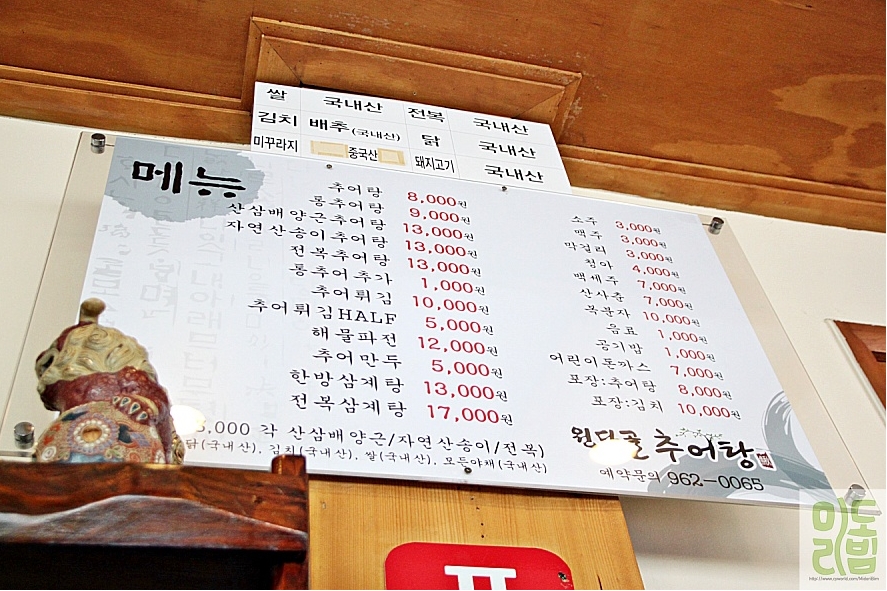 쌀 국내산 전복 국내산
김치 배추(국내산) 닭 국내산
미꾸라지 중국산 돼지고기 국내산
메뉴
추어탕 8,000원
통추어탕 9,000원
산삼배양근추어탕 13,000원
자연산송이추어탕 13,000원
전복추어탕 13,000원
통추어추가 1,000원
추어튀김 10,000원
추어튀김HALF 5,000원
해물파전 12,000원
추어만두 5,000원
한방삼계탕 13,000원
전복삼계탕 17,000원
소주 3,000원
맥주 3,000원
막걸리 3,000원
청아 4,000원
백세주 7,000원
산사춘 7,000원
복분자 10,000원
음료 1,000원
공기밥 1,000원
어린이돈까스 7,000원
포장:추어탕 8,000원
포장:김치 10,000원
,000 각 산삼배양근/자연산송이/전복)
닭(국내산), 김치(국내산), 쌀(국내산), 모든야채(국내산)
추어탕
예약문의 962-0065
미도리빔